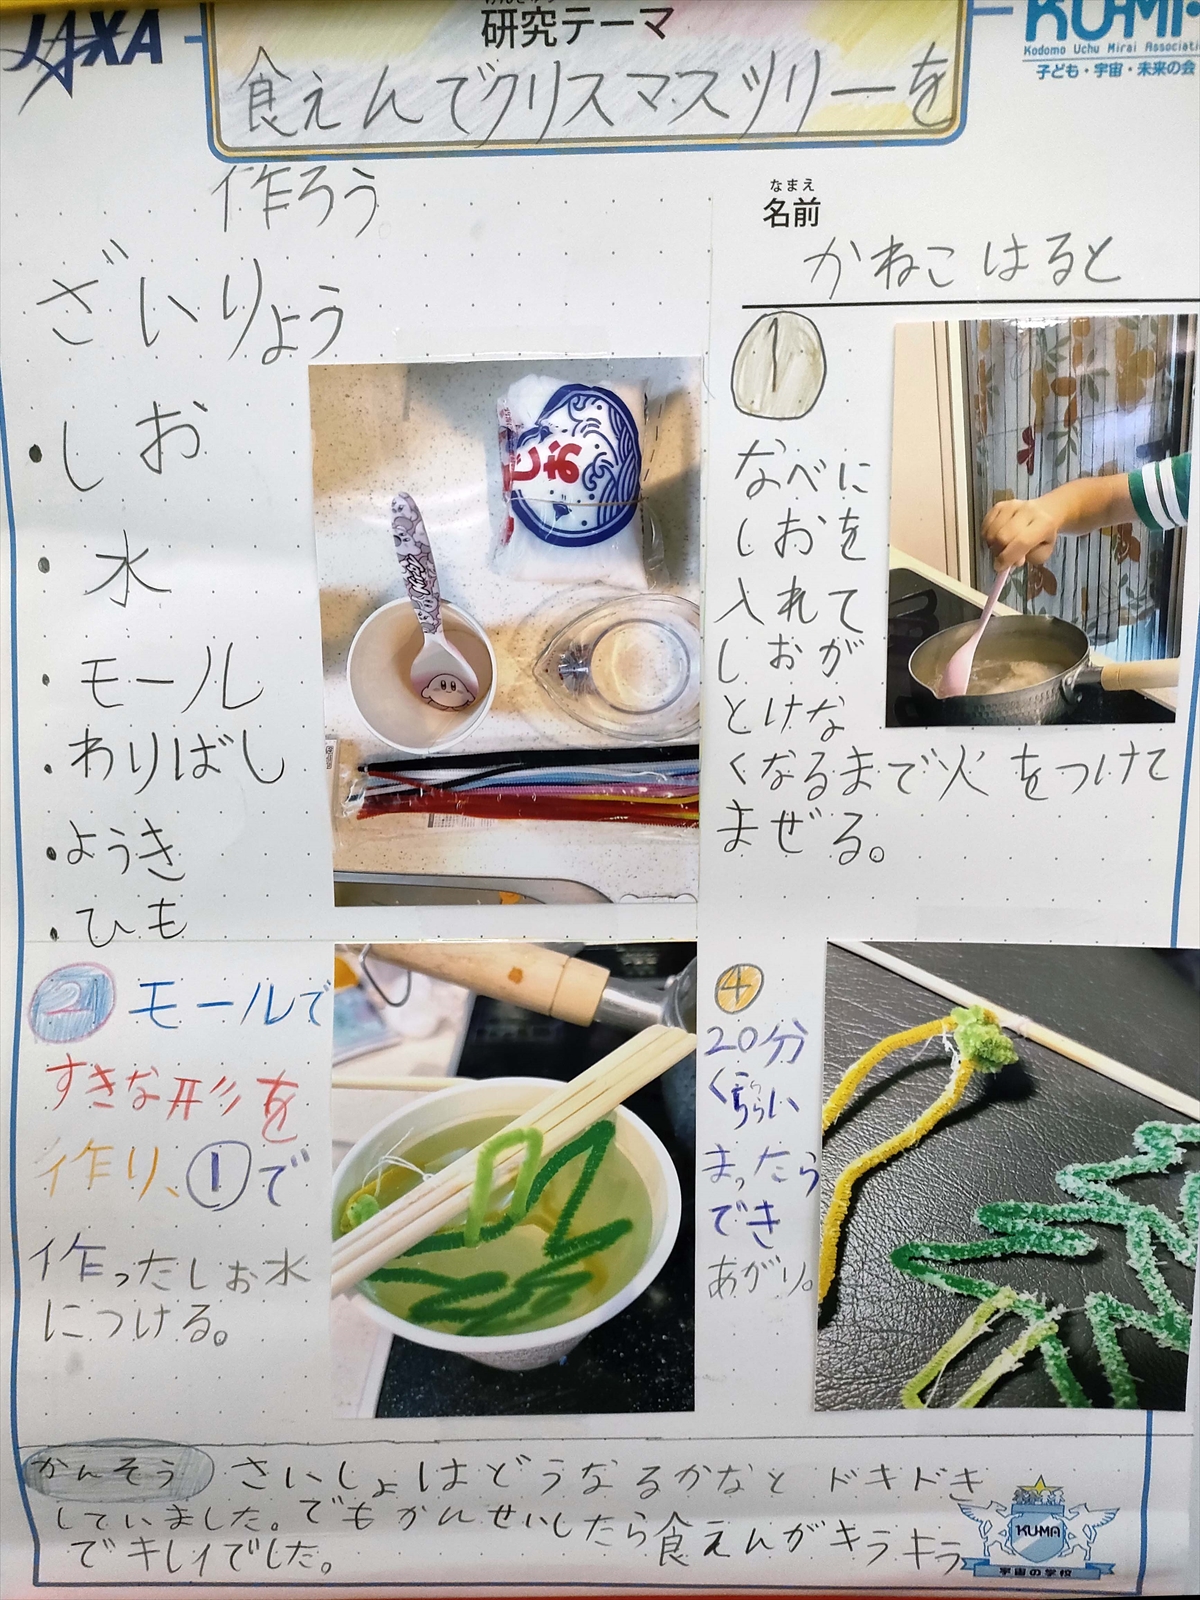 JAXA
けんきゅう
研究テーマ
KU-MA
Kodomo Uchu Mirai Associati
子ども・宇宙・未来の会
食えんでクリスマスツリーを
作ろう
なまえ
名前
かねこ はると
ざいりょう
・しお
・水
・モール
・わりばし
・ようき
・ひも
しお
1
なべに
しおを
入れて
しおが
とけな
くなるまで火をつけて
まぜる。
2 モールで
すきな形を
作り、①で
作ったしお水
につける。
4
20分
くらい
まったら
でき
あがり。
かんそう さいしょはどうなるかなとドキドキ
していました。でもかんせいしたら食えんがキラキラ
でキレイでした。
KUMA
宇宙の学校